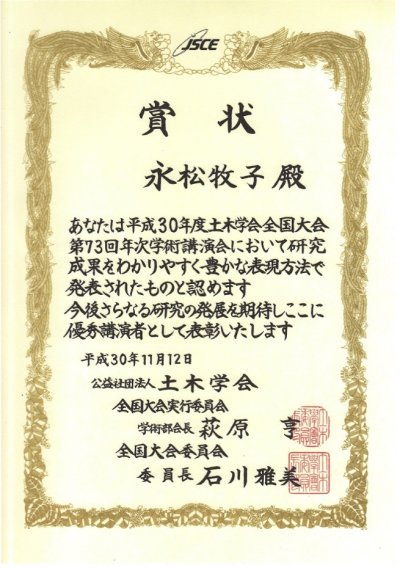 JSCE
賞状
永松牧子殿
あなたは平成30年度土木学会全国大会
第73回年次学術講演会において研究
成果をわかりやすく豊かな表現方法で
発表されたものと認めます
今後さらなる研究の発展を期待しここに
優秀講演者として表彰いたします
平成30年11月12日
公益社団法人 土木学会
全国大会実行委員会
学術部会長 萩原 亨
全国大会委員会
委員長 石川雅美